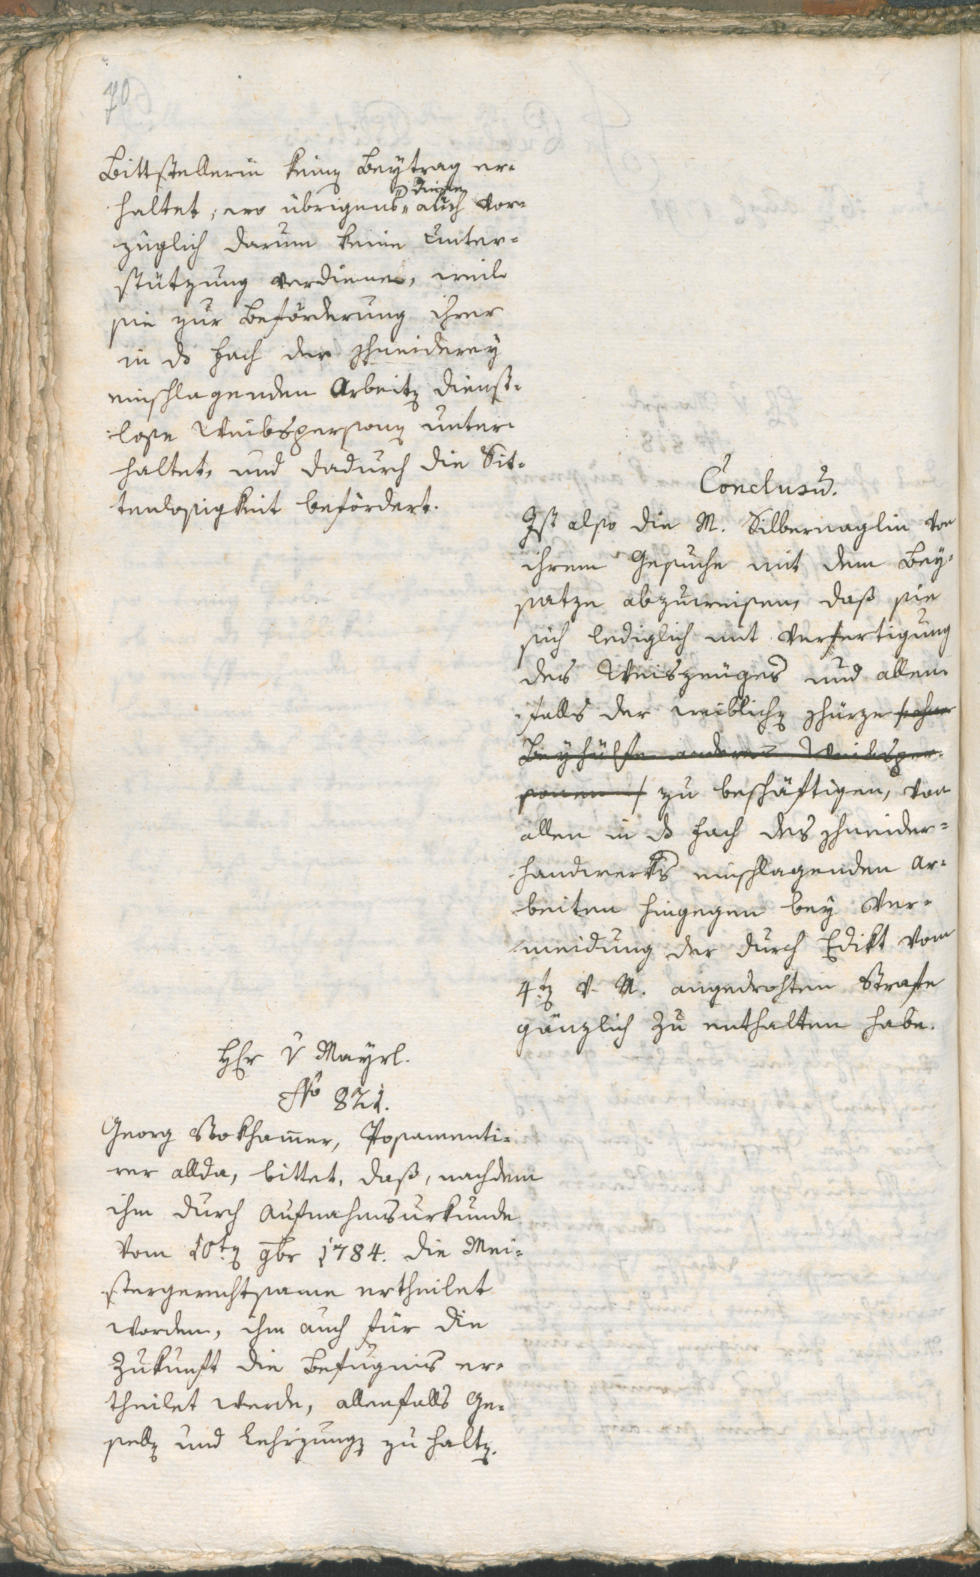 70
Bittstellerin keinen Beytrag er-
haltet, wo übrigens diese auch vor-
züglich darum keine Unter-
stützung verdienen, weil
sie zur Beförderung ihrer
in das Fach der Schneiderey
einschlagenden Arbeiten dienst-
lose Weibspersonen unter-
haltet, und dadurch die Sit-
tenlosigkeit befördert.
Conclusum.
Ist also die M. Silbernaglin von
ihrem Gesuche mit dem Bey-
satze abzuweisen, daß sie
sich lediglich mit Verfertigung
des Weiszeuges und allen-
falls der weiblichen Schürze (ohne
Beyhülfe anderer Weibsper-
sonen) zu beschäftigen, von
allen in das Fach des Schneider-
handwerks einschlagenden Ar-
beiten hingegen bey Ver-
meidung der durch Edikt vom
4ten v. M. angedrohten Strafe
gänzlich zu enthalten habe.
Hr v Mayrl.
No 821.
Georg Bokhamer, Posamenti-
rer allda, bittet, daß, nachdem
ihm durch Aufnahmsurkunde
vom 10ten 9br 1784. die Mei-
stergerechtsame ertheilet
worden, ihm auch für die
Zukunft die Befugnis er-
theilet werde, allenfalls Ge-
sellen und Lehrjungen zu halten.